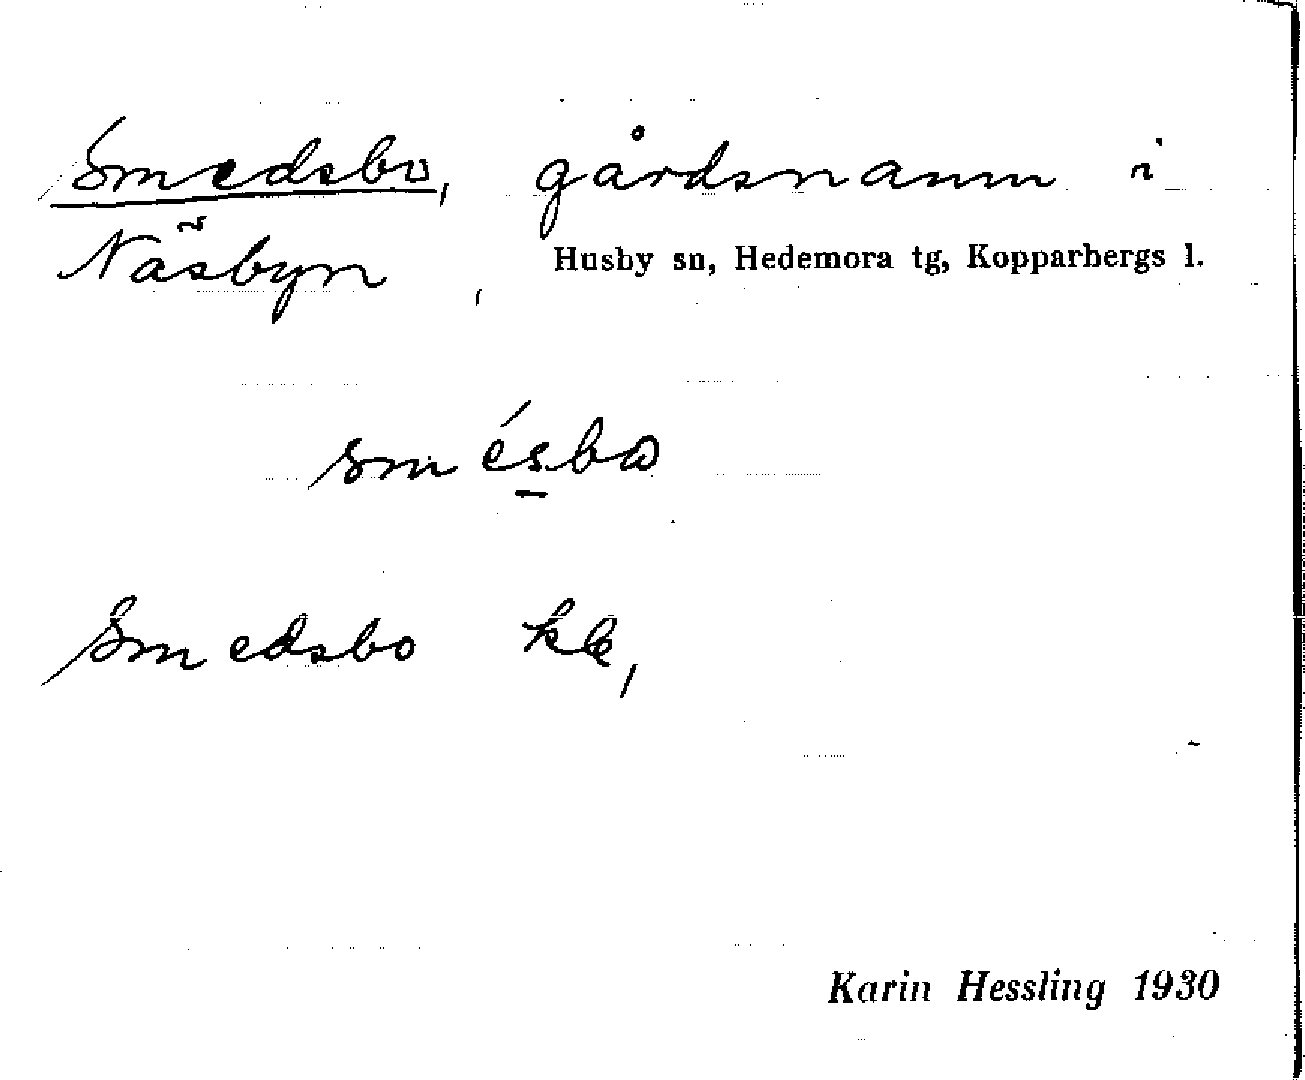 Smedsbo, gårdsnamn i
Näsbyn, Husby sn, Hedemora tg, Kopparbergs l.
smésbo
Smedsbo
Karin Hessling 1930